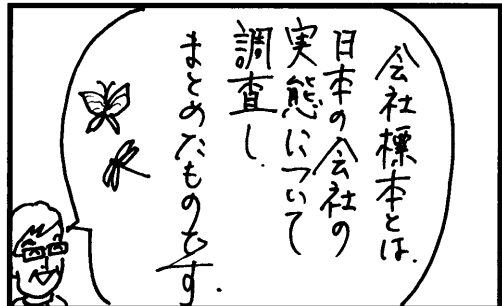 会社標本とは、
日本の会社の
実態について
調査し、
まとめたものです.